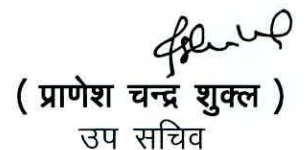 ( प्राणेश चन्द्र शुक्ल )
उप सचिव